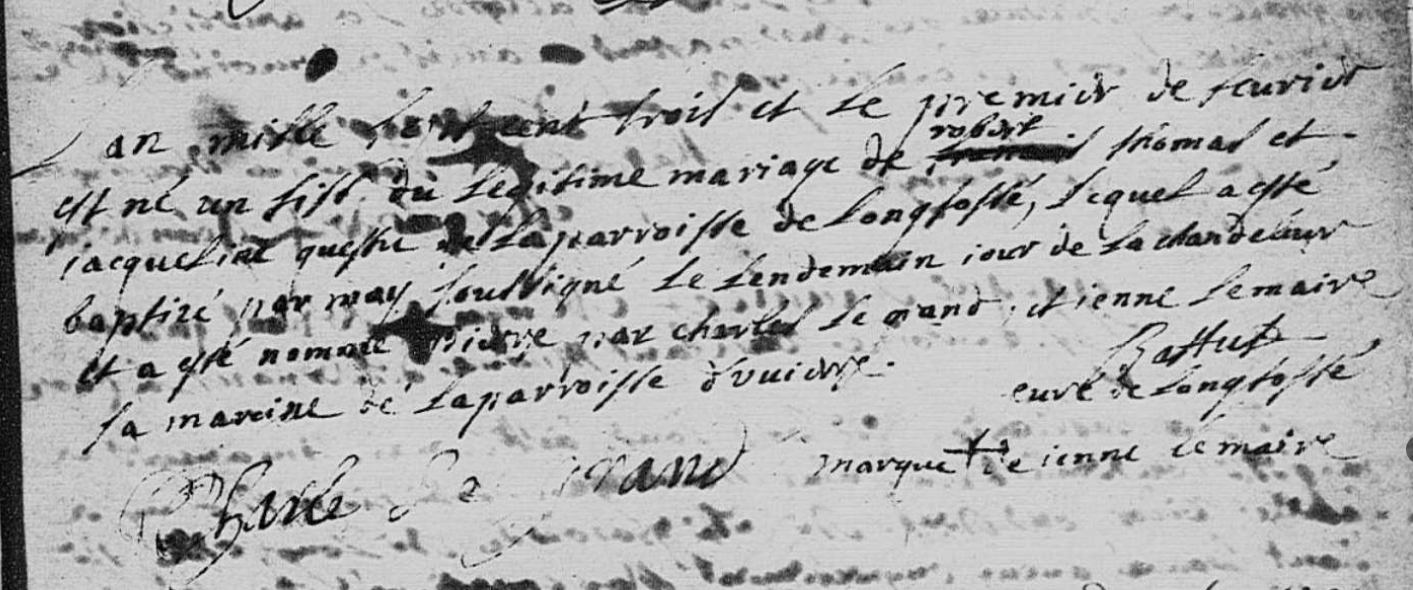 Lan mille sept cent trois et le premier de feurier
est né un fils du legitime mariage de robert thomas et
jacqueline queste de la parroisse de longfossé, lequel a esté
baptizé par moy soussigné le lendemain iour de la chandeleur
et a esté nommé pierre par charles le grand, et ienne lemaire
sa mareine de la parroisse
Battut
curé de longfossé
Charle Le grand
marque de ienne lemaire